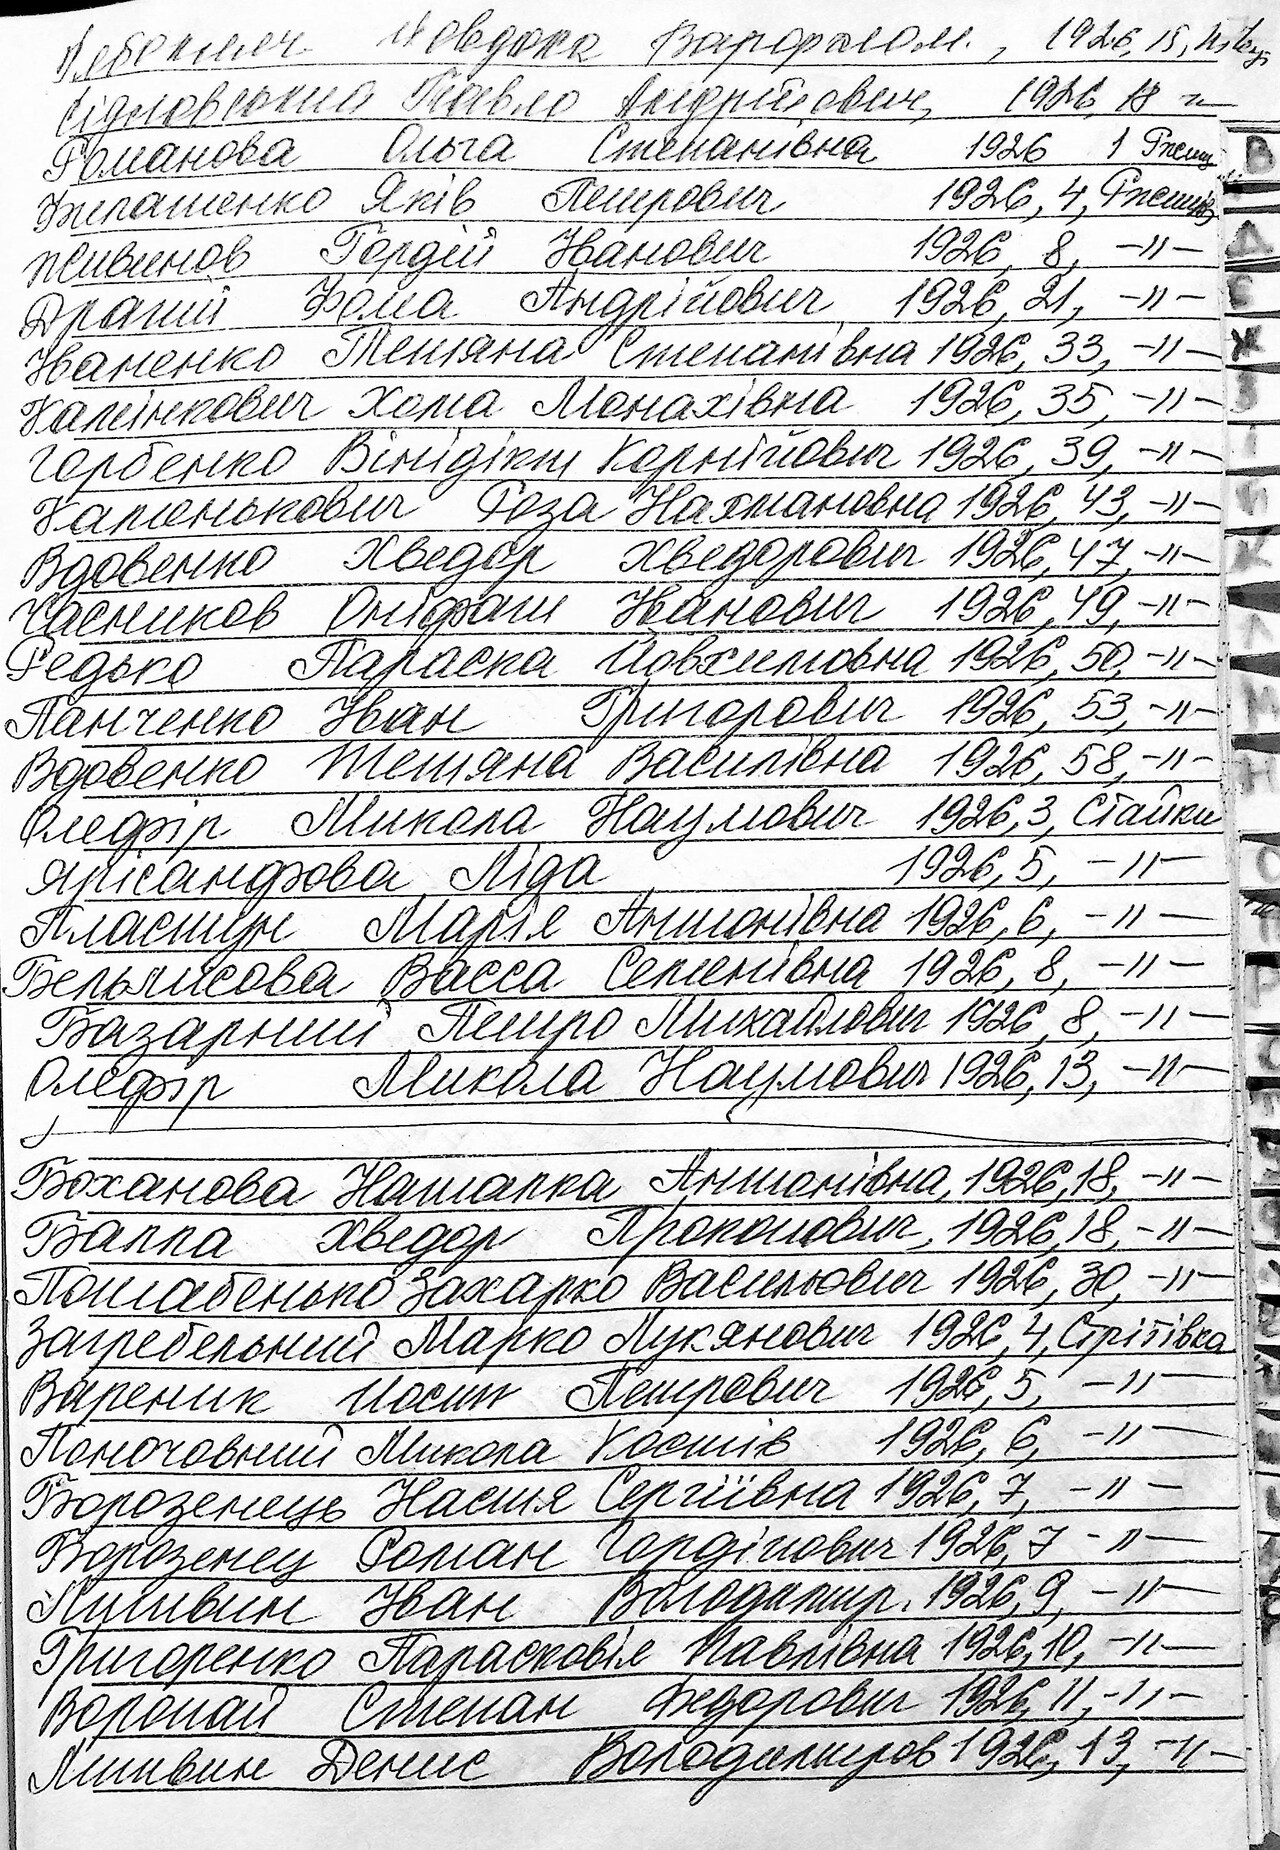 Явдоха Варфолом., 1926, 15,
Павло Андрійович, 1926, 18 -"-
Романова Ольга Степанівна 1926 1 Ржищ
Яків Петрович 1926, 4, Ржищів
Живинов Гордій Іванович 1926, 8, -"-
Драний Хома Андрійович 1926, 21, -"-
Іваненко Тетяна Степанівна 1926, 33, -"-
Хома Монахівна 1926, 35, -"-
Горбенко Вінідікт Корнійович 1926, 39, -"-
Каменькович Роза Нахмановна 1926, 43, -"-
Вдовенко Хведор Хведорович 1926, 47, -"-
Часников Оніфат Іванович 1926, 49, -"-
Редько Параска Йовхимовна 1926, 50, -"-
Панченко Іван Григорович 1926, 53, -"-
Вдовенко Тетяна Василівна 1926, 58, -"-
Олефір Микола Наумович 1926, 3, Стайки
Ліда 1926, 5, -"-
Пластун Марія Антонівна 1926, 6, -"-
Васса Семенівна 1926, 8, -"-
Базарний Петро Михайлович 1926, 8, -"-
Олефір Микола Наумович 1926, 13, -"-
Боханова Наталка Антонівна, 1926, 18, -"-
Балла Хведор Прокопович, 1926, 18, -"-
Захарко Васильович 1926, 30, -"-
Загребельний Марко Лукянович 1926, 4, Стрітівка
Вареник Йосип Петрович 1926, 5, -"-
Поночовний Микола Костів 1926, 6, -"-
Борозенець Настя Сергіївна 1926, 7, -"-
Борозенец Роман Гордійович 1926, 7 -"-
Литвин Іван Володимир. 1926, 9, -"-
Григоренко Парасковія Павлівна 1926, 10, -"-
Воропай Степан Федорович 1926, 11, -"-
Литвин Денис Володимиров 1926, 13, -"-